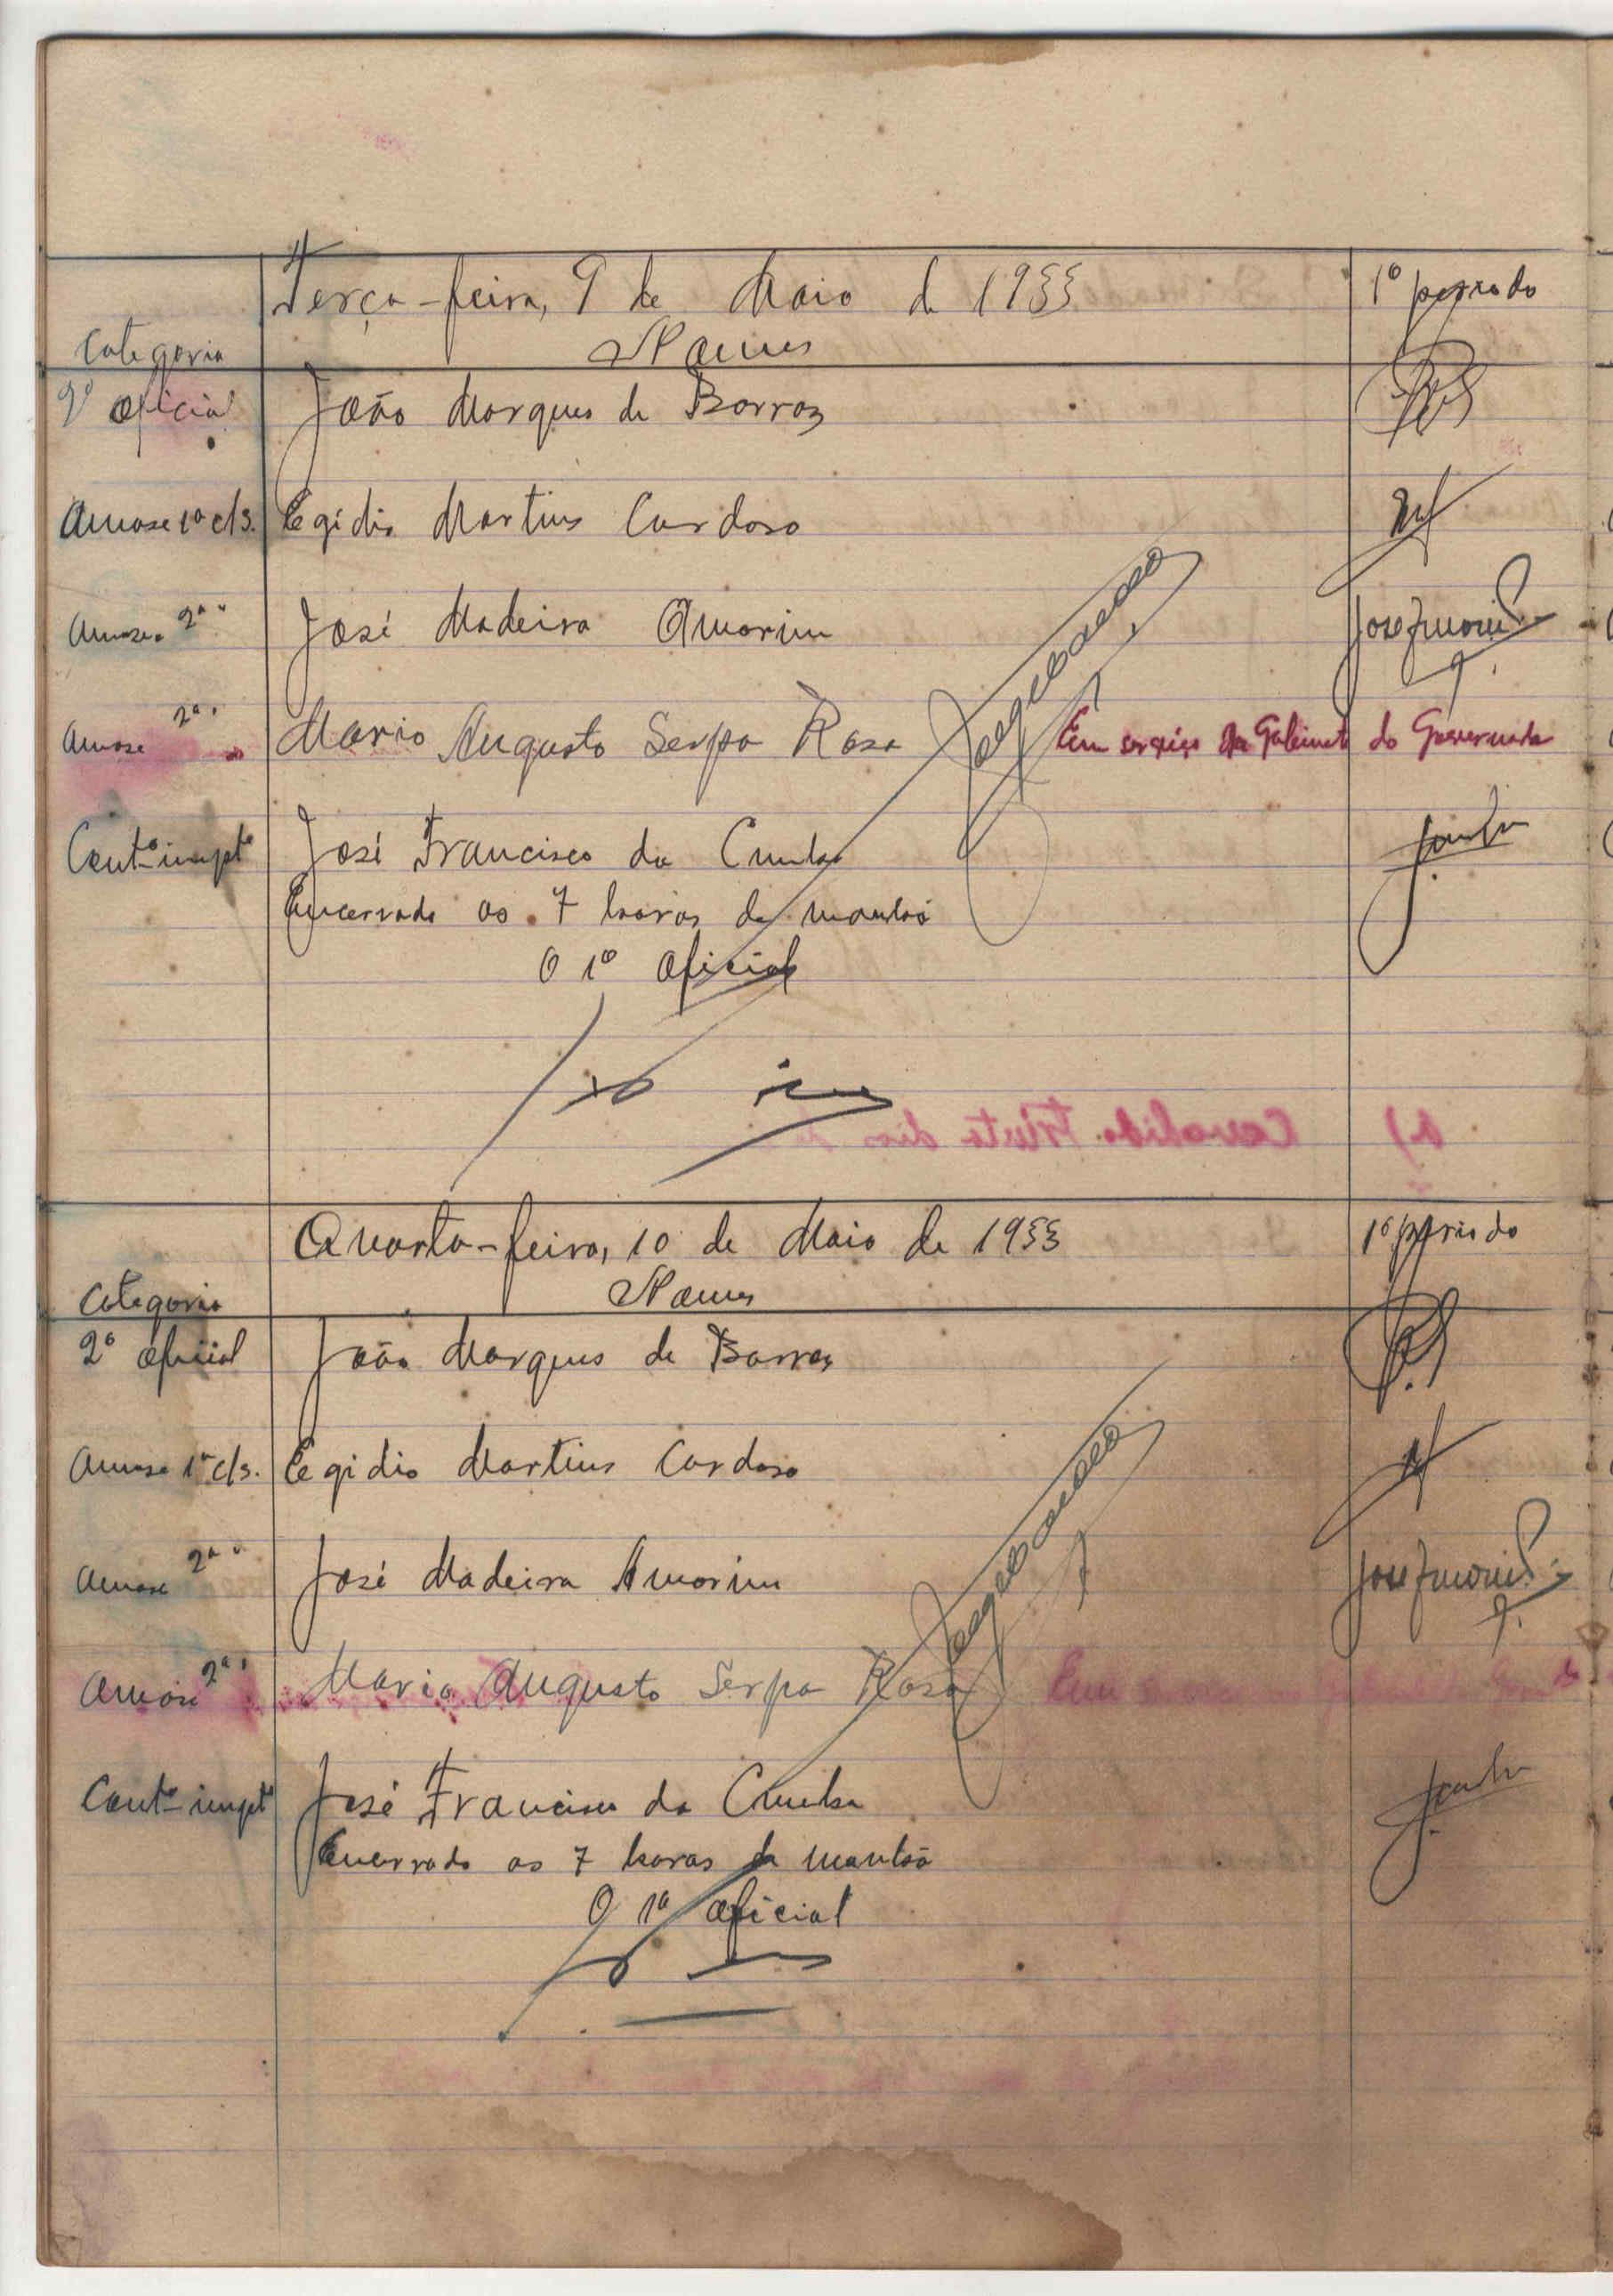 Terça-feira, 9 de Maio de 1933 1º periodo
Categoria Nomes
2º oficial João Marques de Barros
Amase 1ª cls. Egidio Martins Cardoso
Amase 2ª " José Madeira Amorim
Amase 2ª " Mario Augusto Serpa Rosa Em serviço no Gabinete do Governador
Contº imptº José Francisco da Cunha
Encerrado as 7 horas da manhã
O 1º oficial
a) Convalida Trinta dias de
Quarta-feira, 10 de Maio de 1933 1º periodo
Categoria Nomes
2º oficial João Marques de Barros
Amase 1ª cls. Egidio Martins Cardoso
Amase 2ª " José Madeira Amorim
Amase 2ª " Mario Augusto Serpa Rosa Em
Contº imptº José Francisco da Cunha
Encerrado as 7 horas da manhã
O 1º oficial